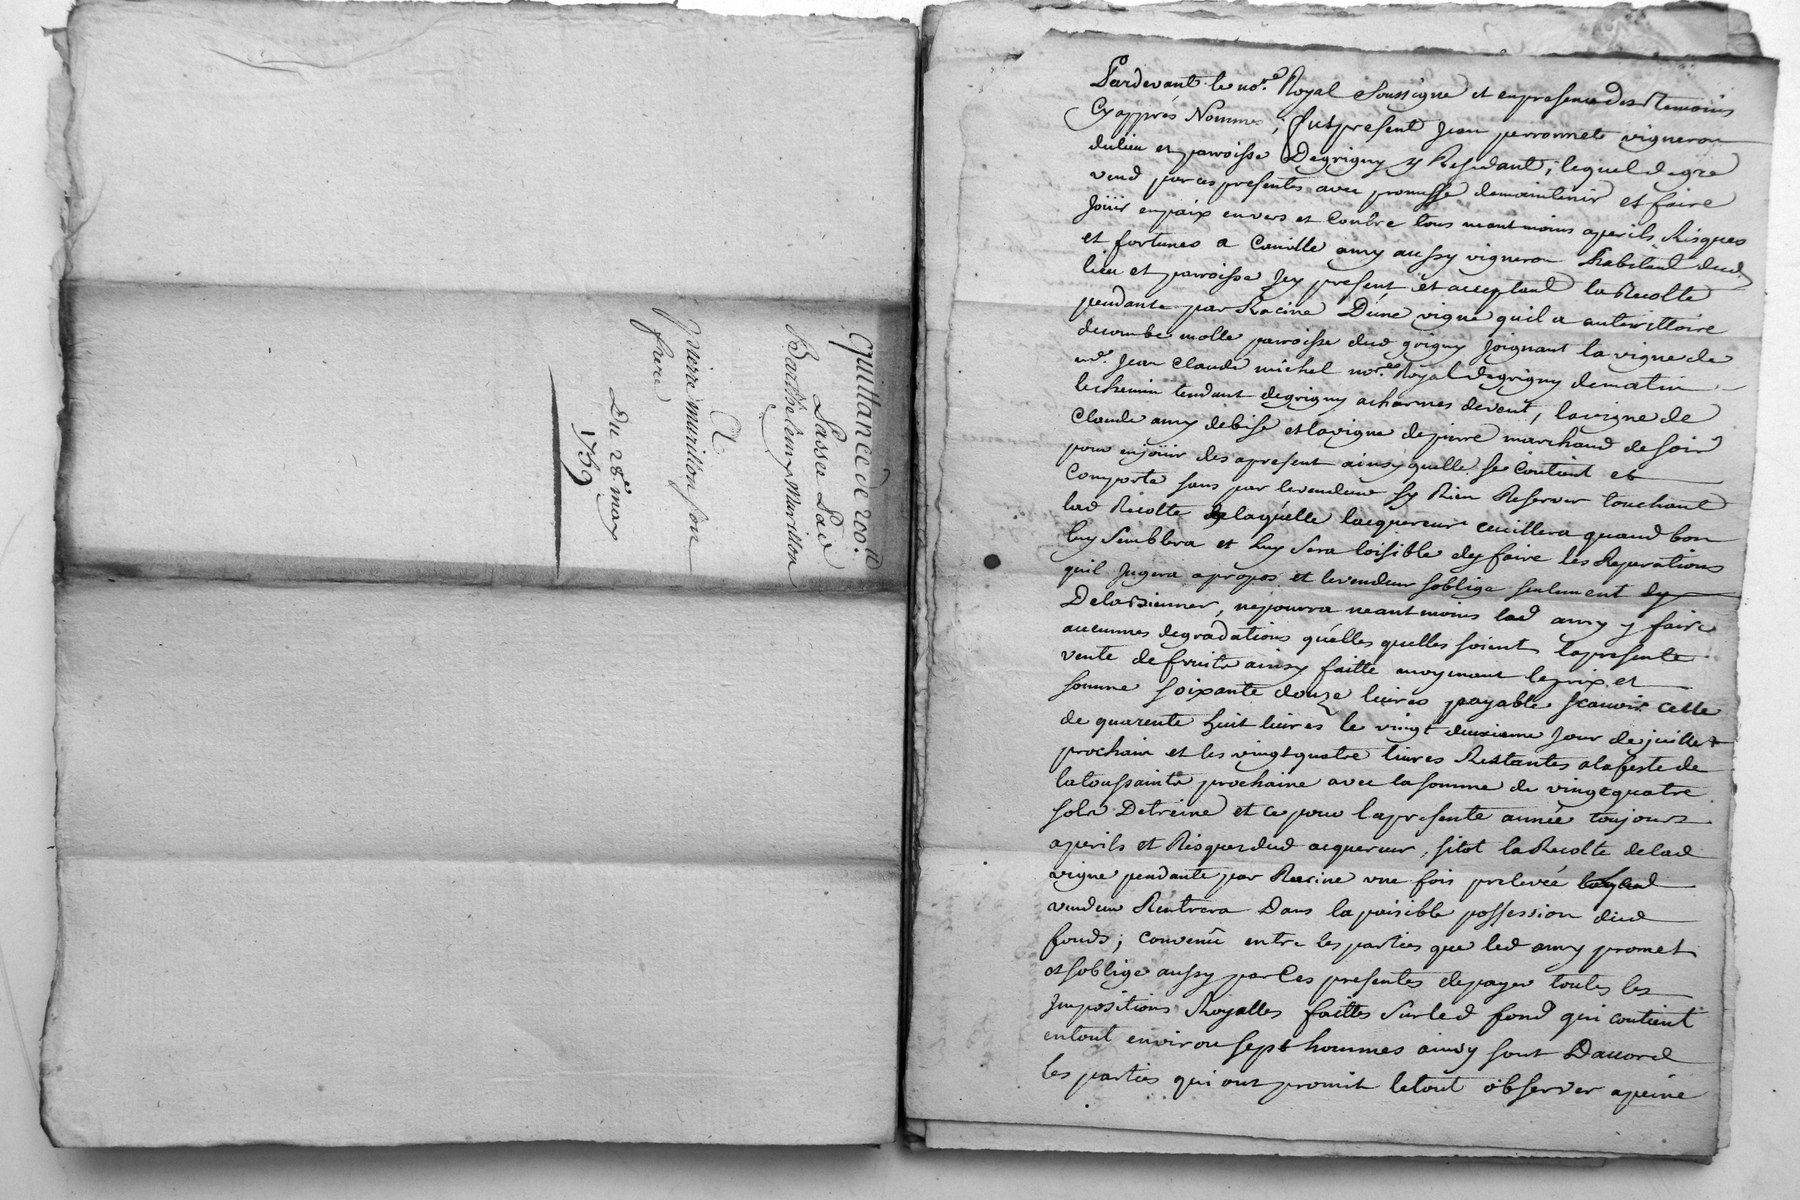 Quittance de 200.ll
Passée Par
Barthelemy Murillon
A
pierre murillon son
frere
Du 28.e may
1789
Pardevant le no.re Royal soussigné et en presence des temoins
Cyapprés Nommes, fut present Jean perronnet vigneron
du lieu et parroisse Degrigny y Residant, lequel de gré
vend par ces presentes avec promesse de maintenir et faire
Joüir en paix envers et Contre tous neantmoins aperils Risques
et fortunes a Camille amy aussy vigneron habitant dud
lieu et parroisse Jcy present et acceptant la Recolte
pendante par Racine D'une vigne quil a au territtoire
de combe molle parroisse dud grigny Joignant la vigne de
m.e Jean Claude michel no.re Royal Degrigny de matin
le chemin tendant de grigny a charnes de vent, la vigne de
Claude amy de bise et la vigne de pierre marchand de soir
pour en joüir des apresent ainsy quelle se Contient et
Comporte sans par le vendeur sy Rien Reserver touchant
lad Recolte de laquelle lacquereur ceuillera quand bon
luy Semblera et luy Sera loisible dey faire les Reparations
quil Jugera apropos et le vendeur soblige seulement de
, ne pourra neantmoins led amy y faire
aucunnes degradations quelles quelles soient la presente
vente de fruits ainsy faitte moyenant le prix et
somme soixante douze livres payable scavoir celle
de quarente huit livres le vingt deuxieme Jour de juillet
prochain et les vingt quatre livres Restantes a la feste de
la toussaints prochaine avec la somme de vingt quatre
sols Detreine et ce pour la presente année toujours
aperils et Risques dud acquereur, sitot la Recolte de lad
vigne pendante par Racine une fois prelevée
vendeur Rentrera Dans la paisible possession dud
fonds; convenü entre les parties que led amy promet
et soblige aussy par Ces presentes de payer toutes les
Impositions Royalles faittes Sur led fond qui contient
en tout environ sept hommes ainsy sont Daccord
les parties qui ont promit le tout observer a peine